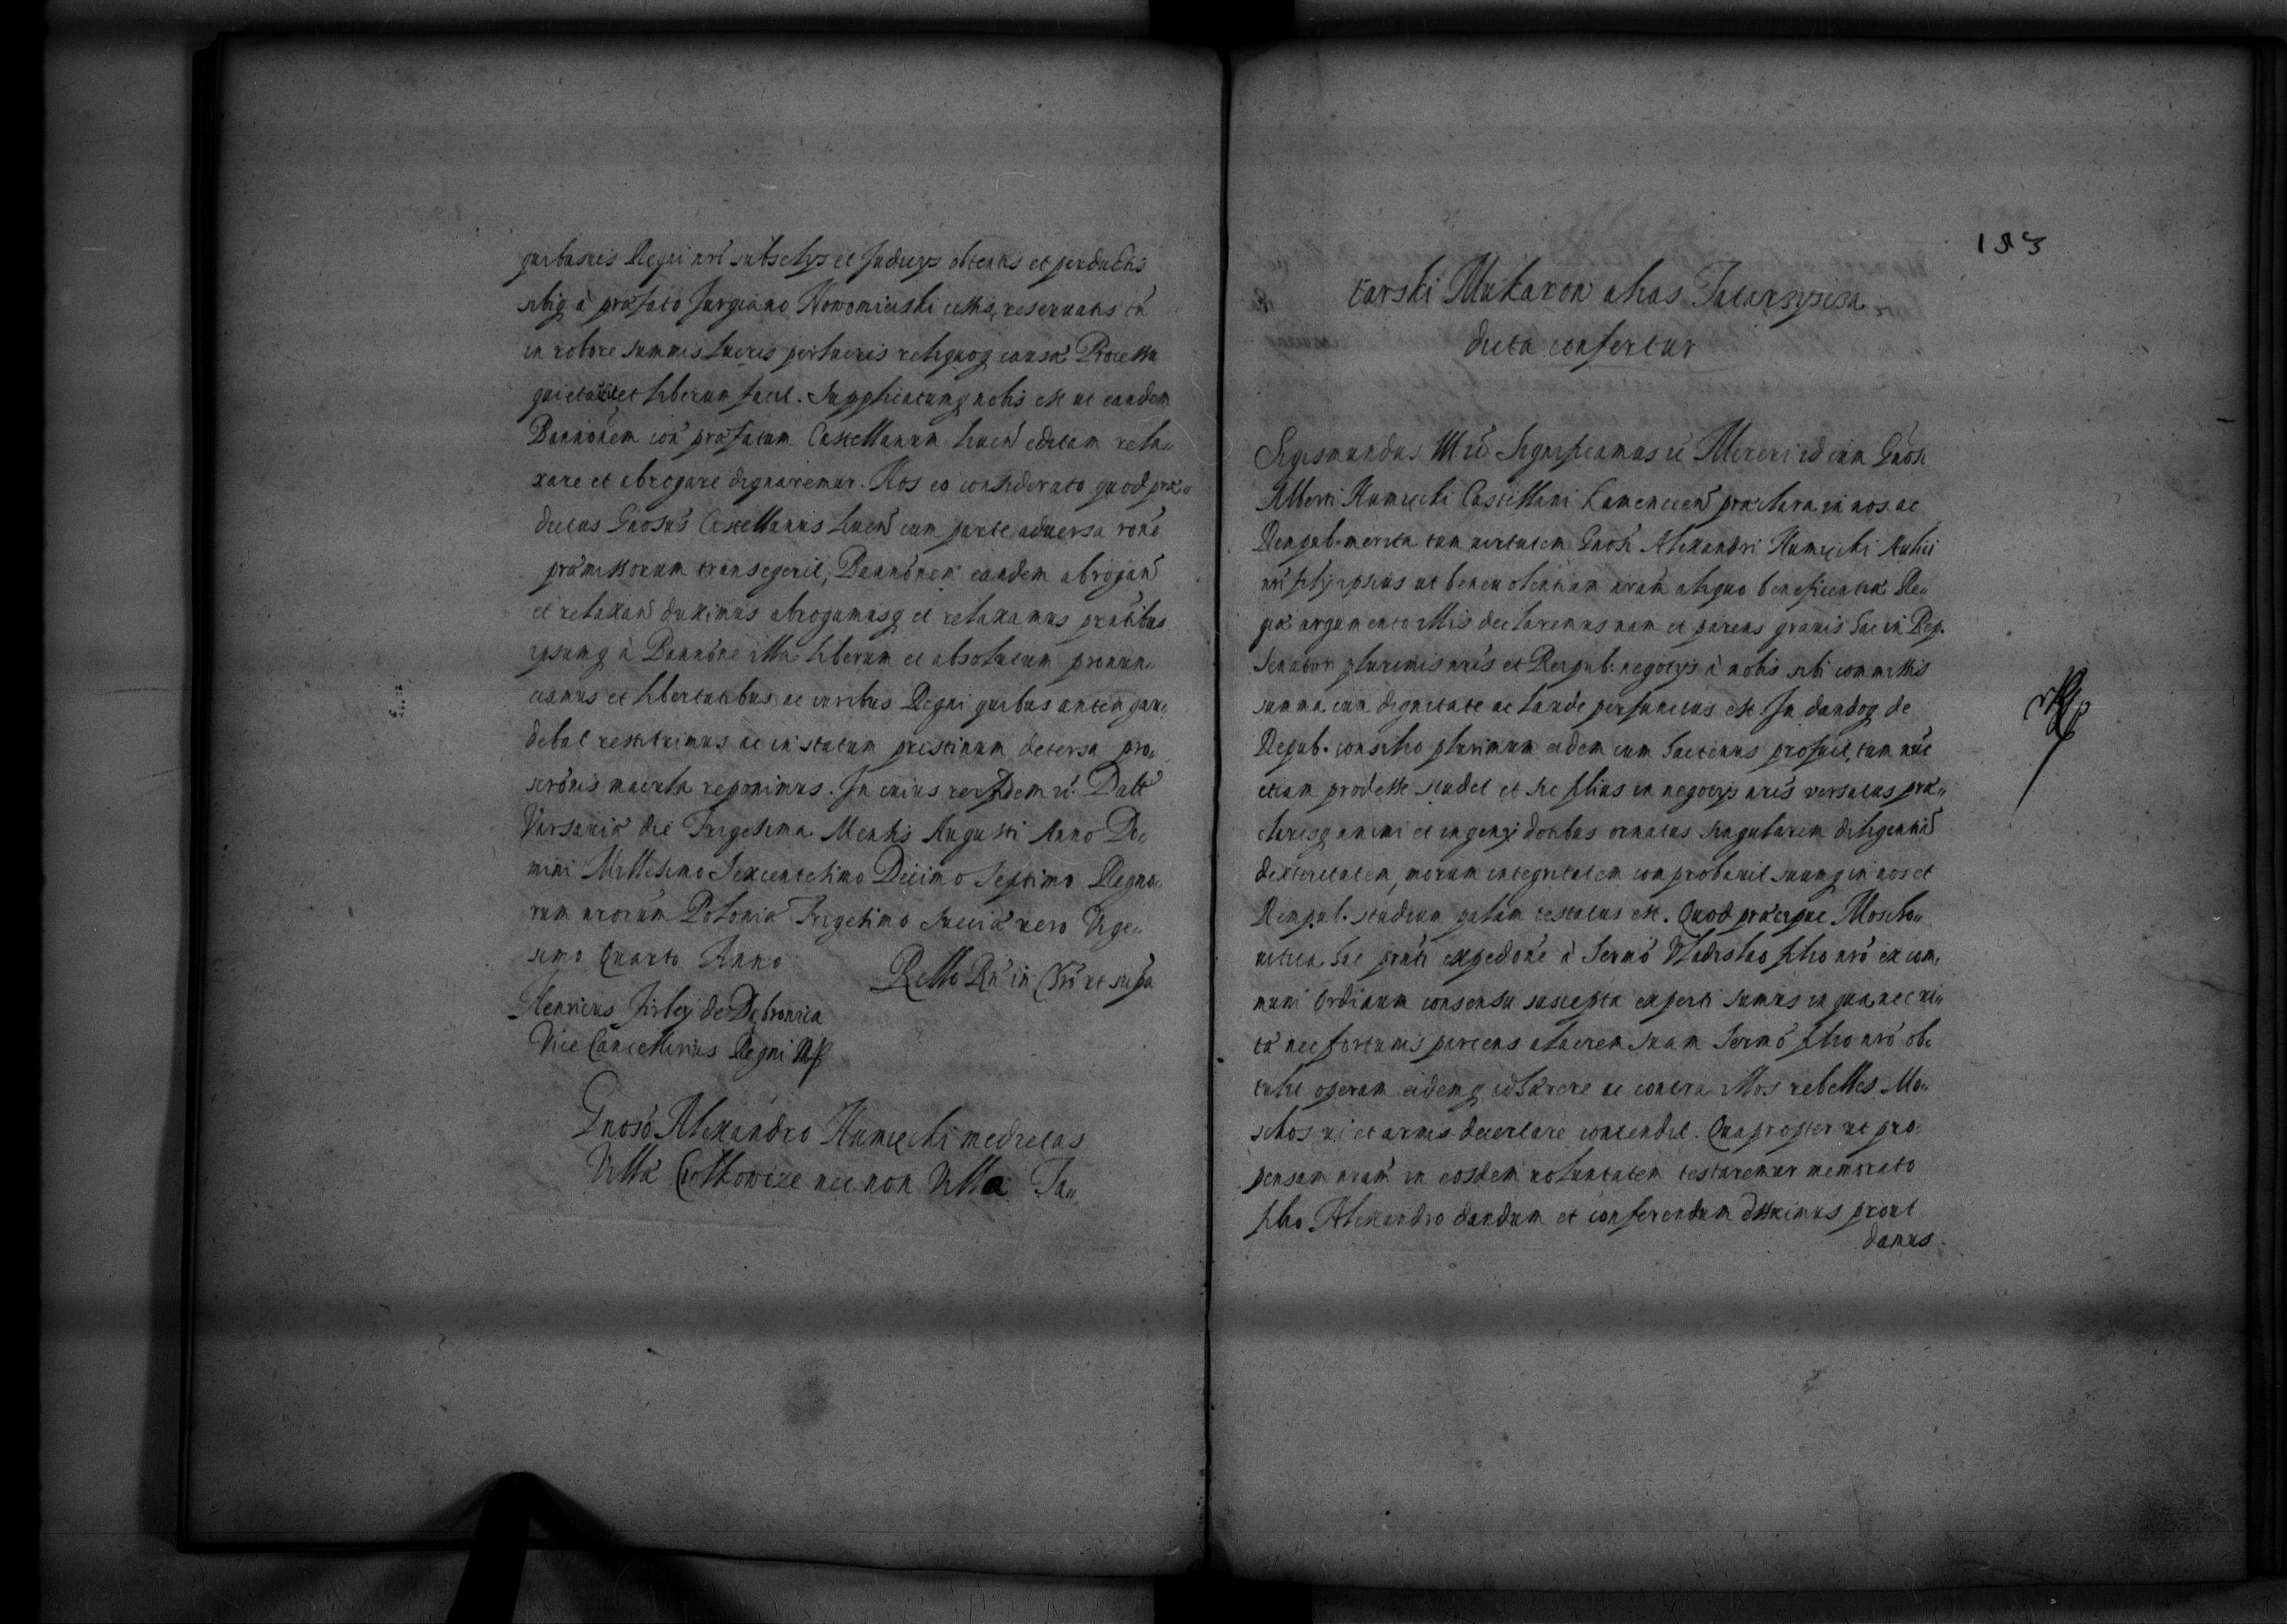 quibusuis Regni nri subselijs et Judicijs obtentis et perductis
sibiq à præfato Jurgiano Nowomieiski cessis, reseruatis tn
in robore summis lucris perlucris reliquoq causæ Processu
quietauit et liberum fecit. Supplicatumq nobis est ut eandem
Bannonem con præfatum Castellanum Liuen editam rela„
xare et abrogare dignaremur. Nos eo considerato quod præ„
dictus Gnosus Castellanus Liuen cum parte aduersa rone
præmissorum transegerit, Bannonem eandem abrogan
et relaxan duximus abrogamusq et relaxamus pntibus
ipsumq à Bannone illa liberum et absolutum pronun„
ciamus et libertatibus ac iuribus Regni quibus antea gau„
debat restituimus ac in statum pristinum detersa pro„
scronis macula reponimus. In cuius rei fidem ec. Datt
Varsauiæ die Trigesima Mensis Augusti Anno Do„
mini Millesimo Sexcentesimo Decimo Septimo Regno„
rum nrorum Poloniæ Trigesimo Sueciæ uero Vige„
simo Quarto Anno
Rello Rn in Chro ut supa
Henricus Firley de Dąbrowica
Vice Cancellarius Regni
Gnoso Alexandro Humięcki medietas
Villæ Glotkowice nec non Villa Ta„
183
tarski Mukarow alias Tatarzyska
dicta confertur
Sigismundus III ec Significamus ec Mereri id cum Gnosi
Alberti Humięcki Castellani Camenecen præclara in nos ac
Rempub. merita tum uirtutem Gnosi Alexandri Humięcki Aulici
nri filij ipsius ut beneuolentiam nram aliquo beneficentiæ Re„
giæ argumento illis declaremus nam et parens grauis hac in Rep.
Senator plurimis nris et Reipub. negotijs à nobis sibi commissis
summa cum dignitate ac laude perfunctus est. In dandoq de
Repub. consilio plurimum eidem cum hactenus profuit, tum nuc
etiam prodesse studet et hic filius in negotijs nris versatus præ„
clarisq animi et ingenij dotibus ornatus singularem diligentia
dexteritatem, morum integritatem comprobauit suumq in nos et
Rempub. studium palam testatus est. Quod præcipue Moscho„
uitica hac pnti expedone à Sermo Vladislao filio nro ex com„
muni Ordinum consensu suscepta experti sumus in qua nec ui„
tæ nec fortunis parcens alacrem suam Sermo filio nro ob„
tulit operam eidemq adhærere ac contra illos rebelles Mo„
schos ui et armis decertare contendit. Quapropter ut pro„
pensam nram in eosdem uoluntatem testaremur memorato
filio Alexandro dandum et conferendum duximus prout
damus